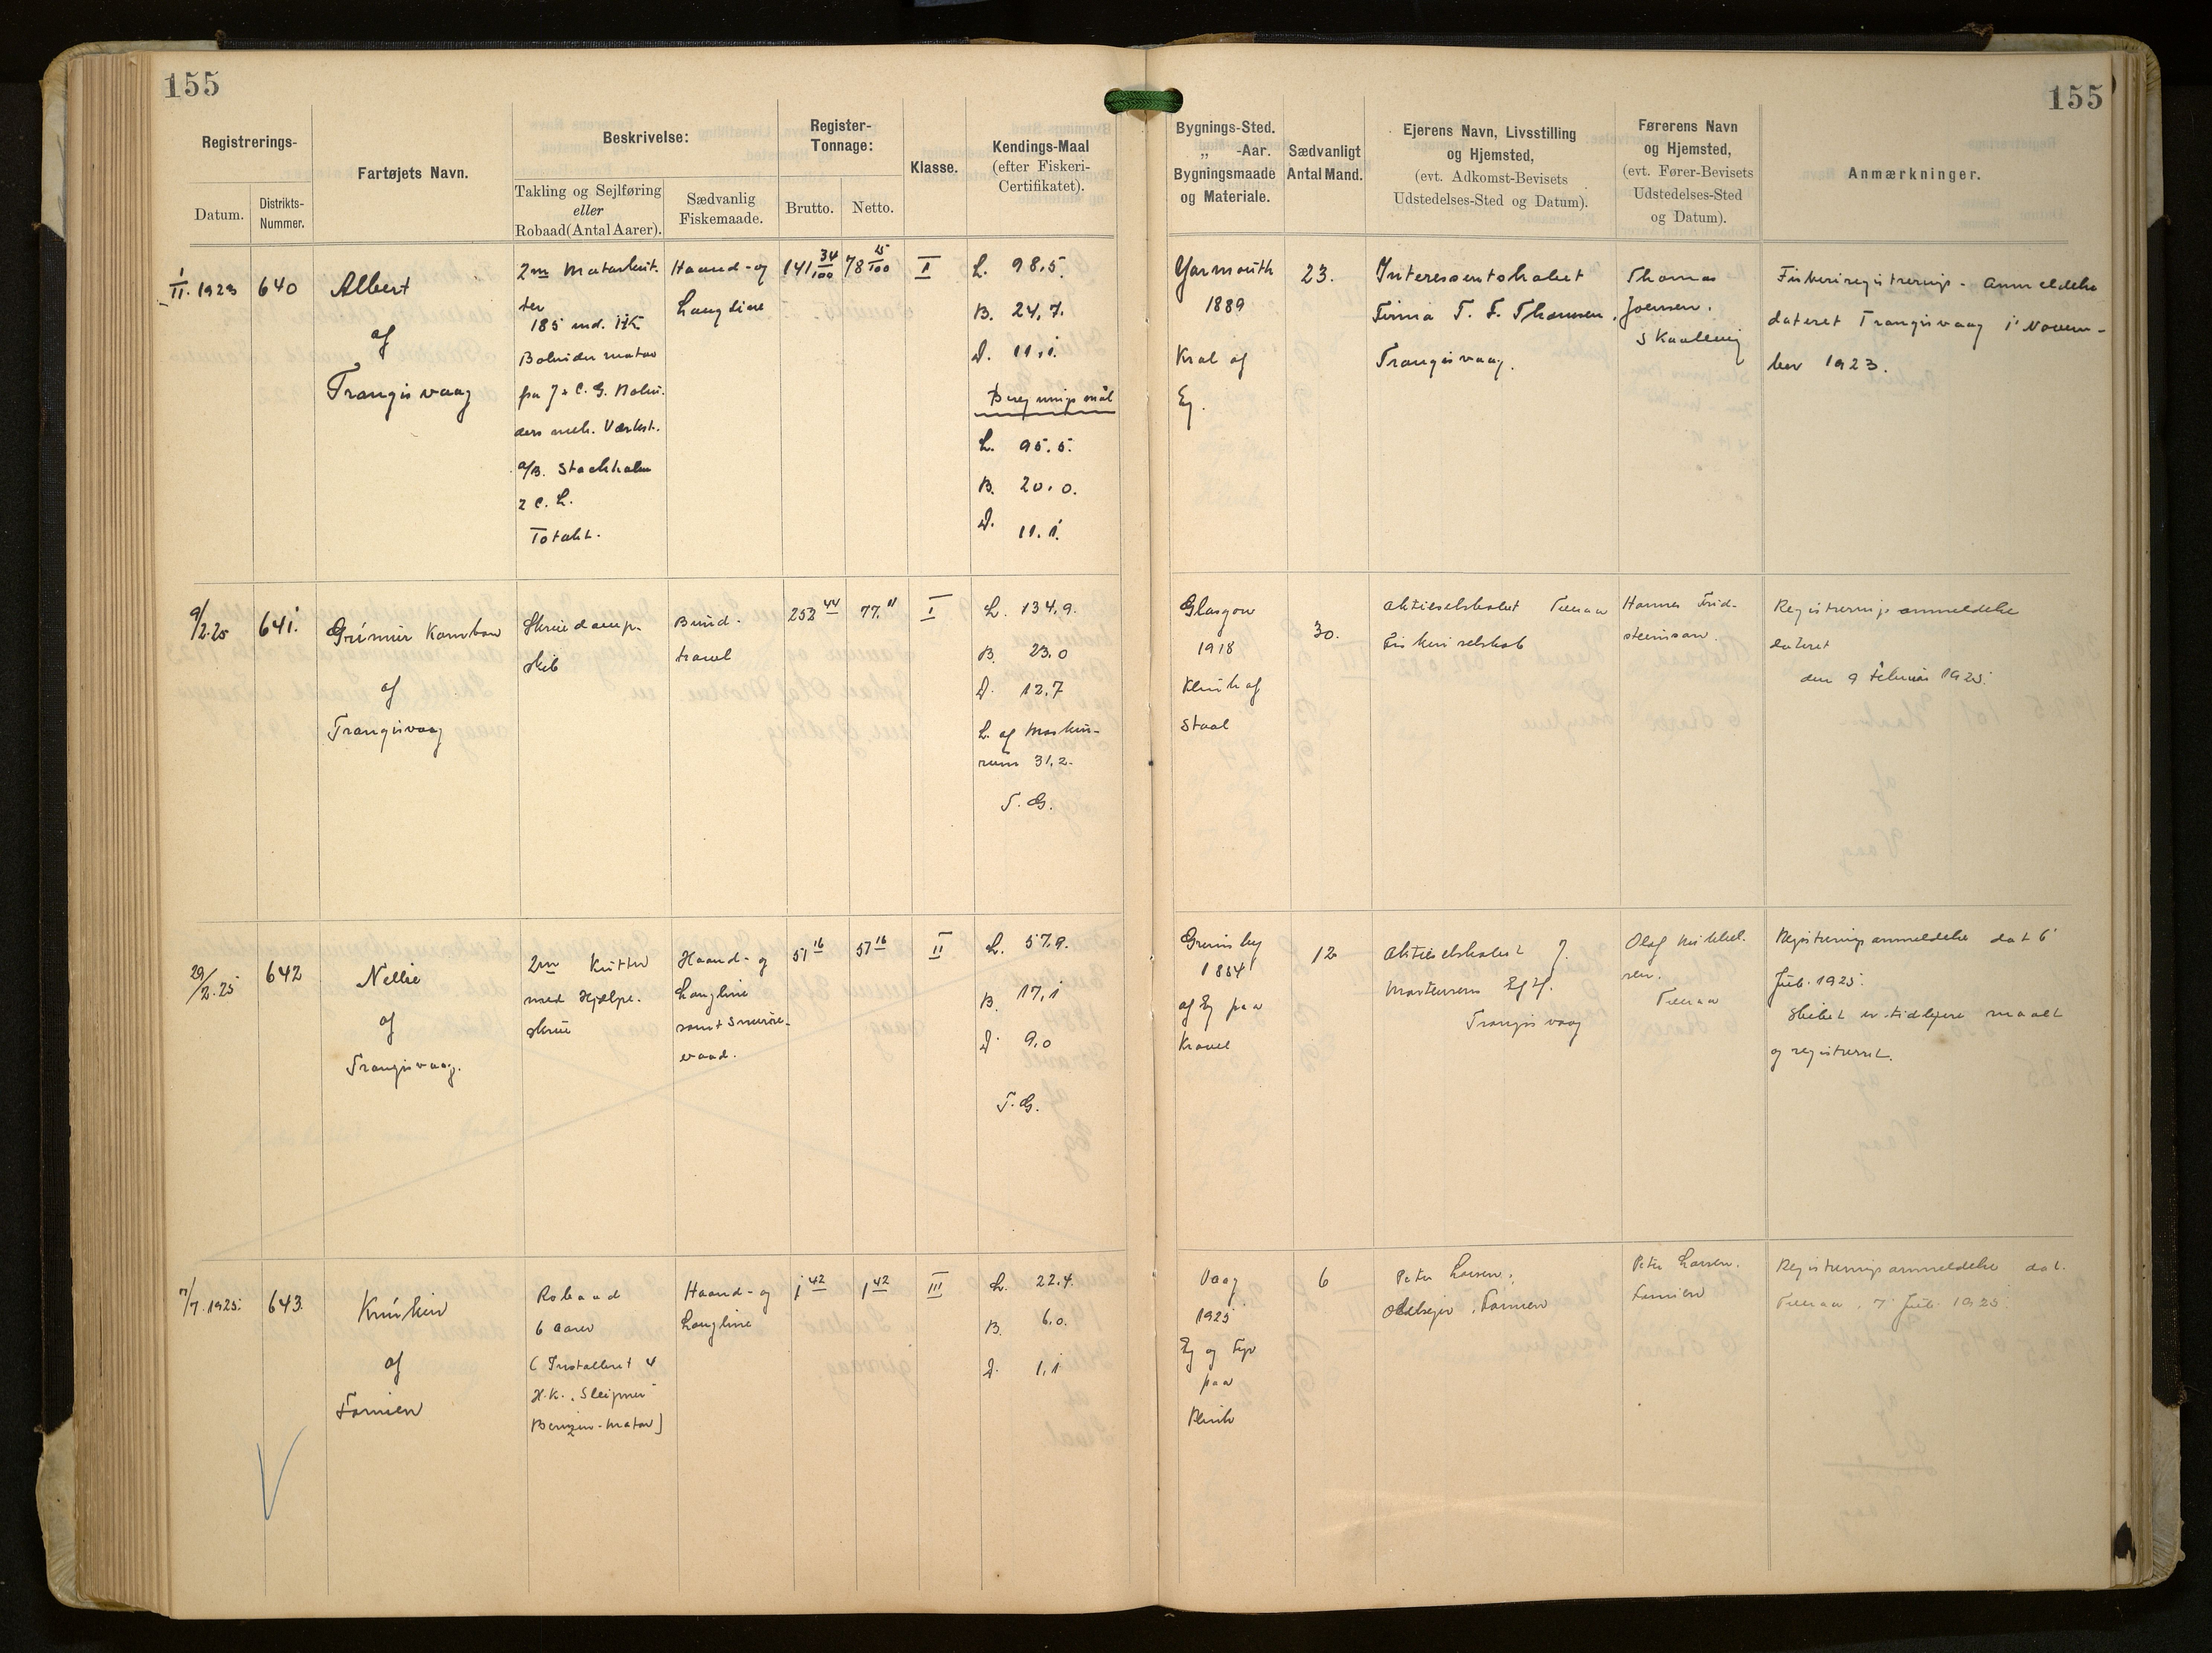 155
155
Registrerings-
Datum.
Distrikts-
Nummer.
Fartøjets Navn.
Beskrivelse:
Takling og Sejlføring
eller
Robaad (Antal Aarer).
Sædvanlig
Fiskemaade.
Register-
Tonnage:
Brutto.
Netto.
Klasse.
Kendings-Maal
(efter Fiskeri-
Certifikatet).
Bygnings-Sted.
„ -Aar.
Bygningsmaade
og Materiale.
Sædvanligt
Antal Mand.
Ejerens Navn, Livsstilling
og Hjemsted,
(evt. Adkomst-Bevisets
Udstedelses-Sted og Datum).
Førerens Navn
og Hjemsted,
(evt. Fører-Bevisets
Udstedelses-Sted
og Datum).
Anmærkninger.
1/11. 1923
640
Albert
af
Trangisvaag
2 m Motorkut-
ter
185 ind. HK
Bolinder motor
fra J & C. G. Bolin-
ders mek. Værkst.
a/B. Stockholm
2 C. L.
Totakt.
Haand- og
Langline
141 34/100
78 15/100
I
L. 98,5.
B. 24,7.
D. 11,1.
Beregningsmål
L. 95.5.
B. 20,0.
D. 11.1.
Yarmouth
1889
Kral af
Eg.
23.
Interessentskabet
Firma T. F. Thomsen,
Trangisvaag.
Thomas
Joensen.
Skaalevig
Fiskeriregistrerings-anmeldelse
dateret Trangisvaag 1' Novem-
ber 1923.
9/2.25
641.
Grímur Kamban
af
Trangisvaag
Skruedamp-
skib
Bund-
trawl
252 44
77. 11
I
L. 134,9.
B. 23,0
D. 12,7
L. af Maskin-
rum 31,2.
T. G.
Glasgow
1918
Klink af
Staal
30.
Aktieselskabet Tveraa
Fiskeriselskab
Hannes Frid-
steinsson.
Registreringsanmeldelse
dateret
den 9 Februar 1925.
29/2.25
642
Nellie
af
Trangisvaag.
2 m Kutter
med Hjælpe-
skrue
Haand- og
Langline
samt Snurre-
vaad.
51 16
51 16
II
L. 57,9.
B. 17,1
D. 9,0
T. G.
Grimsby
1884
af Eg paa
Kravel
12
Aktieselskabet J.
Mortensens Eftf.
Trangisvaag
Olaf Mikkel-
sen.
Tveraa
Registreringsanmeldelse dat 6'
Juli 1925.
Skibet er tidligere maalt
og registreret.
7/7. 1925.
643.
af
Famien
Robaad
6 Aarer
(Installeret 4
H.K. „Sleipner"
Benzin-Motor)
Haand- og
Langline
1 42
1 42
III
L. 22.4.
B. 6,0.
D. 1,1
Vaag
1925
Eg og Fyr
paa
Klink
6
Peter Larsen,
Odelsejer, Famien
Peter Larsen.
Famien
Registreringsanmeldelse dat.
Tveraa, 7' Juli 1925.